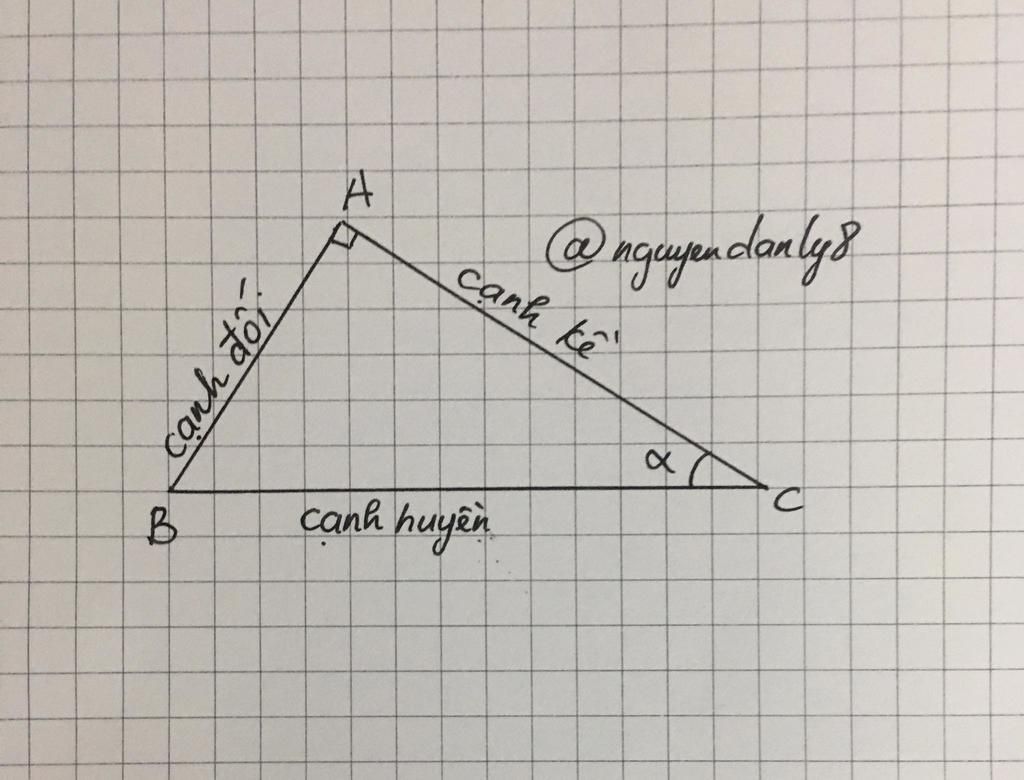 A
@nguyendanly8
cạnh đối
cạnh kề
α
B
cạnh huyền
C